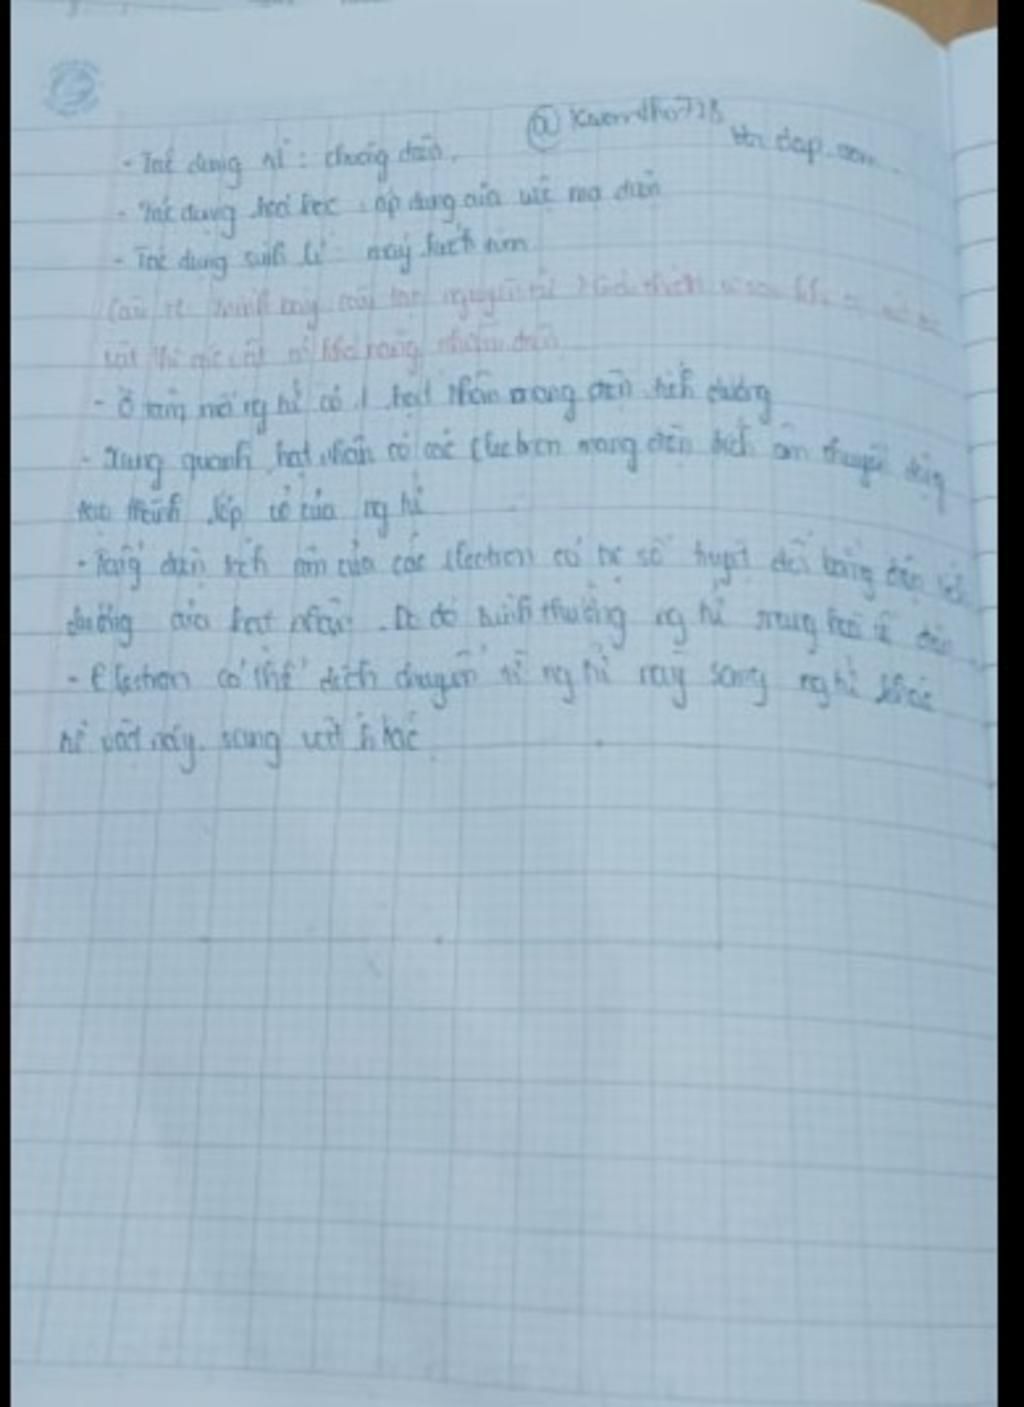 - Tác dụng từ : chuông điện.
- Tác dụng hoá học : áp dụng của việc mạ điện
- Tác dụng sinh lí máy kích tim
Câu
vật thì các vật có khả năng nhiễm điện
- Ở tâm mỗi ng tử có 1 hạt nhân mang điện tích dương
- Xung quanh hạt nhân có các Electron mang điện tích âm chuyển động
tạo thành lớp vỏ của ng tử
- Tổng điện tích âm của các Electron có trị số tuyệt đối bằng điện tích
dương của hạt nhân. Do đó bình thường ng tử trung hoà về điện
- Electron có thể dịch chuyển từ ng tử này sang ng tử khác
từ vật này sang vật khác